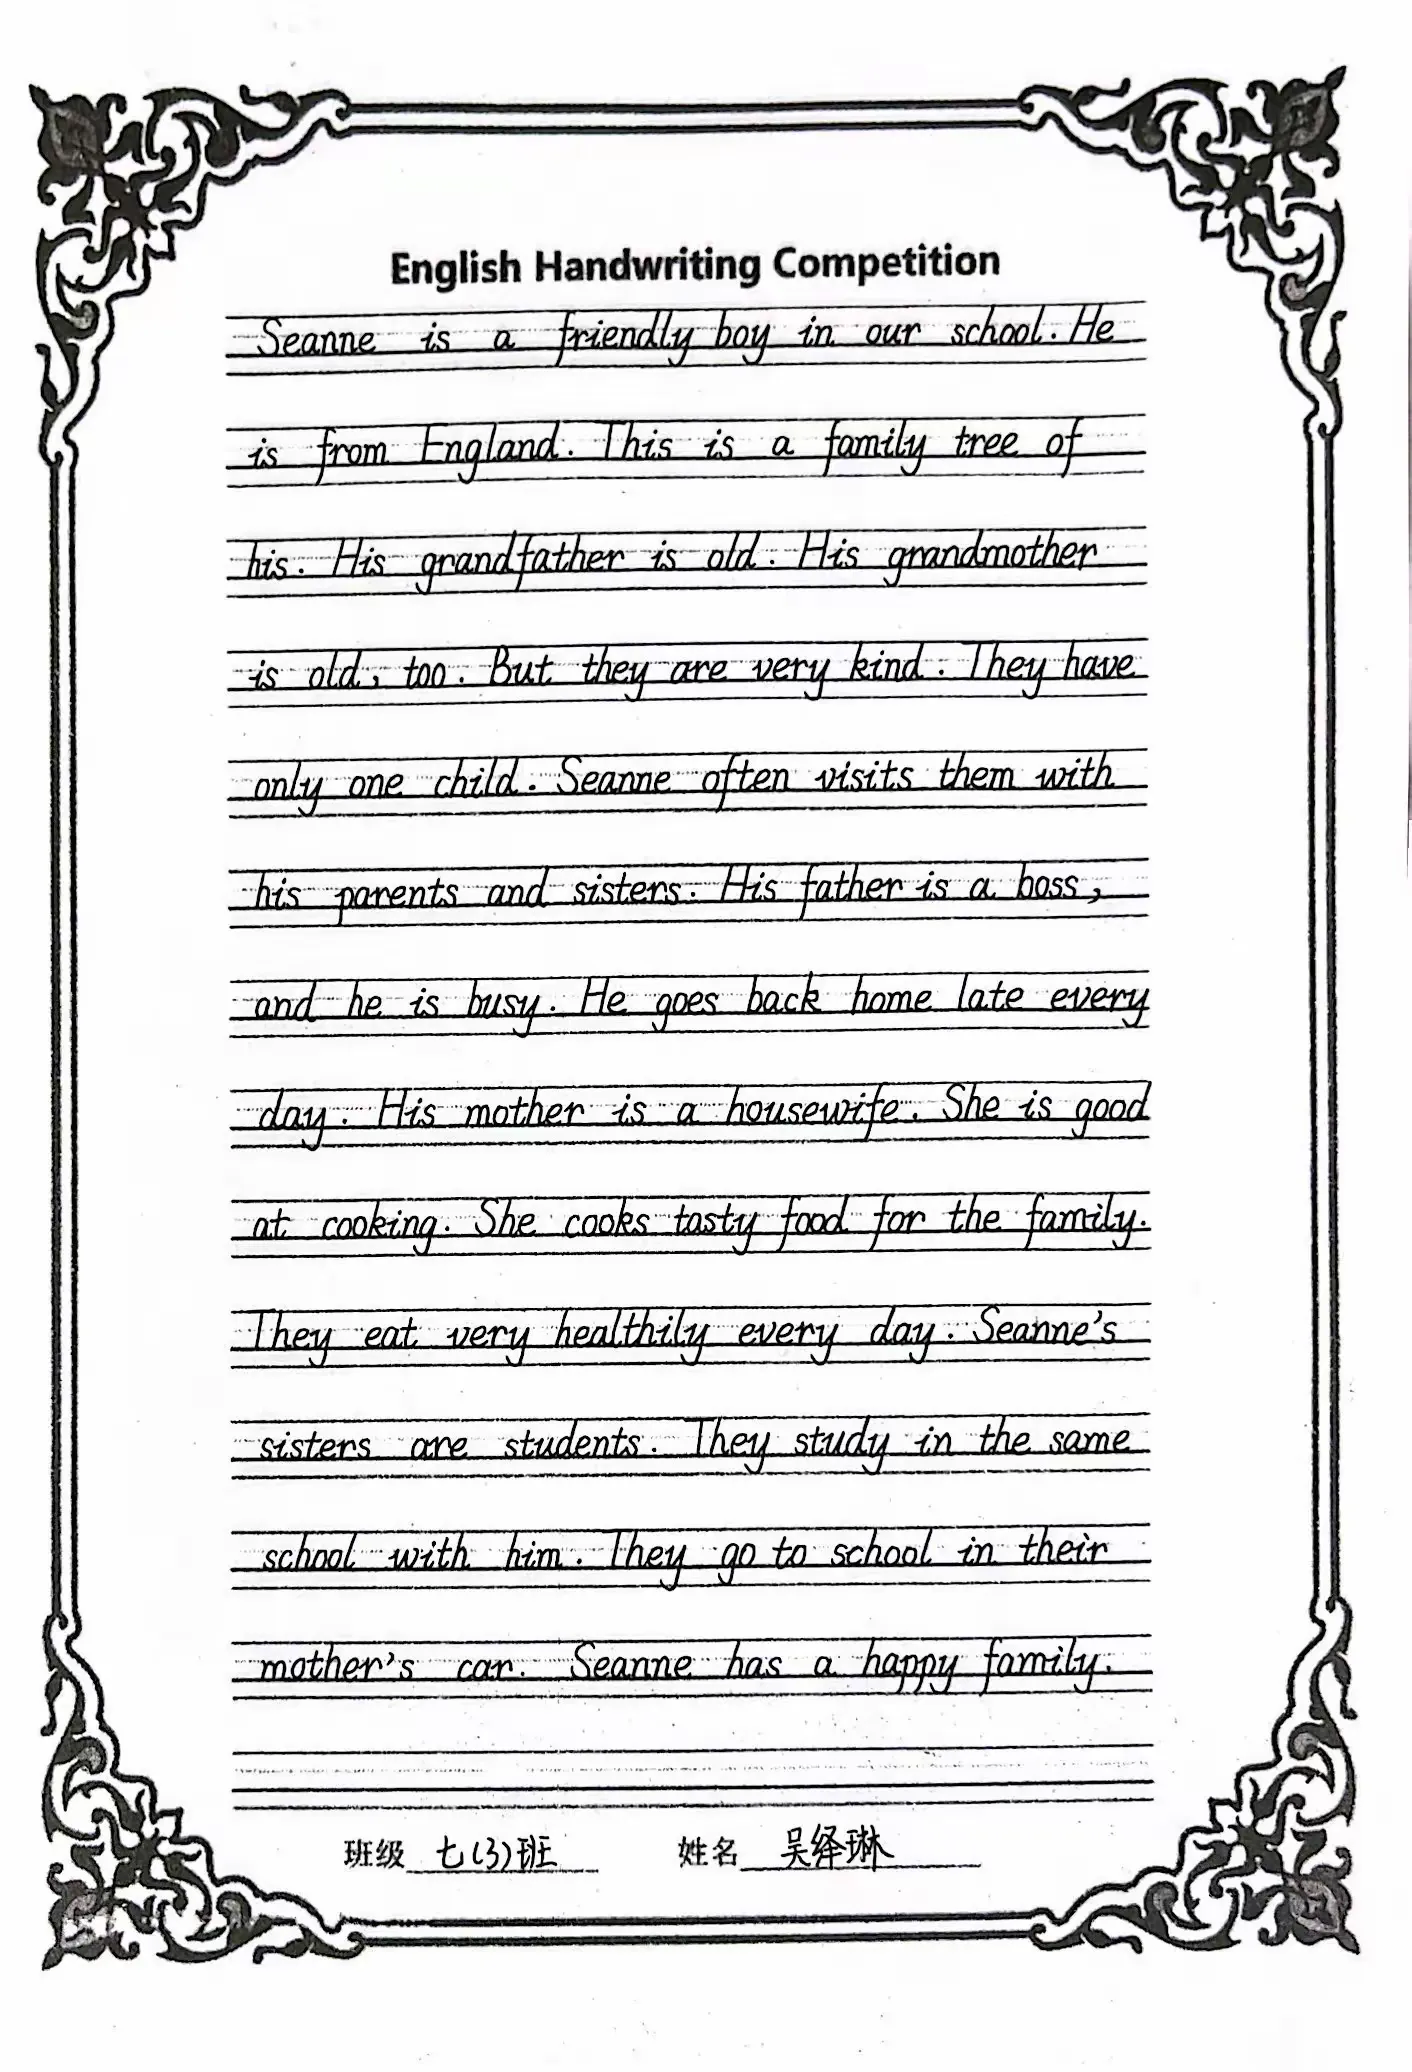 English Handwriting Competition
Seanne is a friendly boy in our school. He
is from England. This is a family tree of
his. His grandfather is old. His grandmother
is old, too. But they are very kind. They have
only one child. Seanne often visits them with
his parents and sisters. His father is a boss,
and he is busy. He goes back home late every
day. His mother is a housewife. She is good
at cooking. She cooks tasty food for the family.
They eat very healthily every day. Seanne's
sisters are students. They study in the same
school with him. They go to school in their
mother's car. Seanne has a happy family.
班级 七(3)班 姓名 吴绎琳